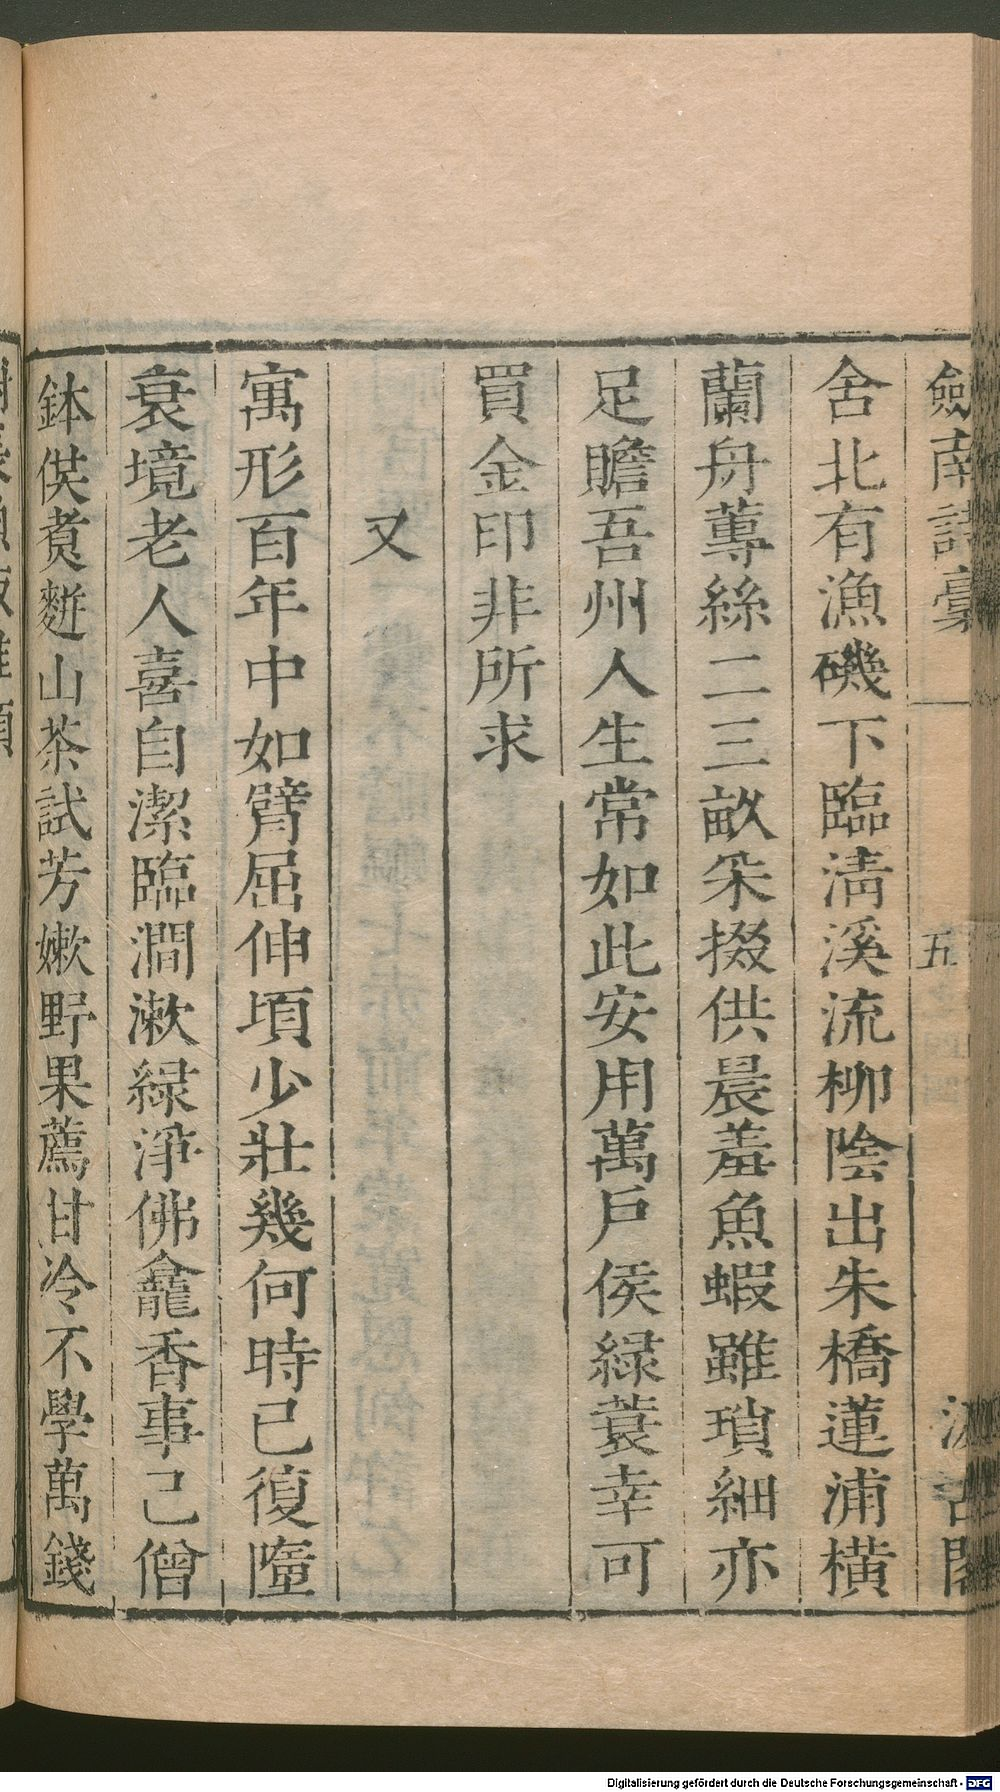 劍南詩稾 五 汲古閣
舍北有漁磯下臨淸溪流柳陰出朱橋蓮浦橫
蘭舟蓴絲二三畝采掇供晨羞魚蝦雖瑣細亦
足贍吾州人生常如此安用萬戶侯緑蓑幸可
買金印非所求
又
寓形百年中如臂屈伸頃少壯幾何時已復墮
衰境老人喜自潔臨澗漱緑淨佛龕香事已僧
鉢供煑麪山茶試芳嫩野果薦甘冷不學萬錢
Digitalisierung gefördert durch die Deutsche Forschungsgemeinschaft - DFG